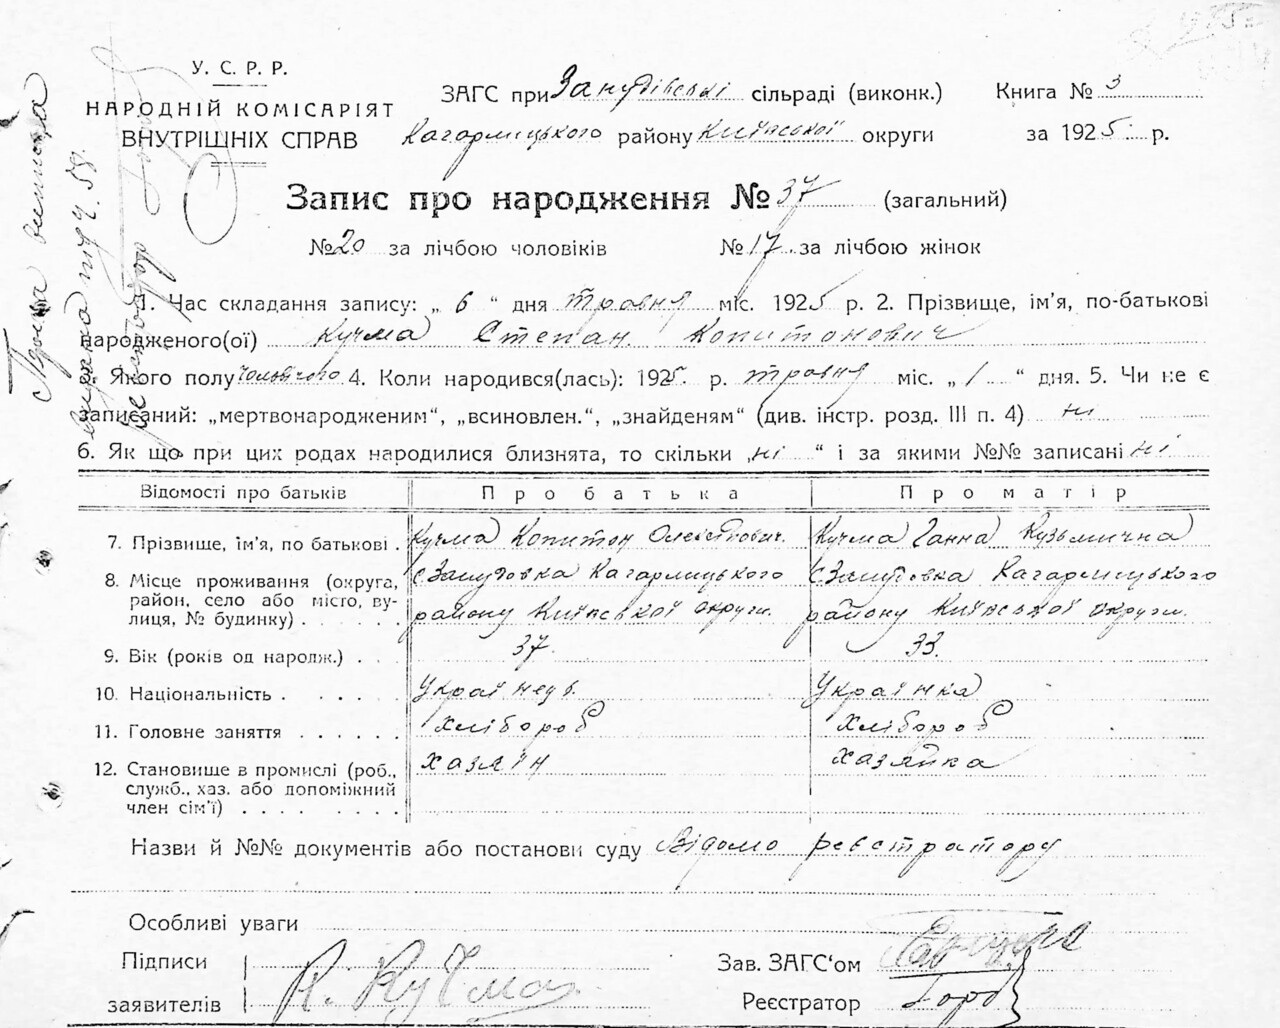 У. С. Р. Р.
НАРОДНІЙ КОМІСАРІЯТ
ВНУТРІШНІХ СПРАВ
ЗАГС при сільраді (виконк.) Книга № 3
Кагарлицького району Київської округи за 1925 р.
Запис про народження № 37 (загальний)
№ 20 за лічбою чоловіків № 17 за лічбою жінок
1. Час складання запису: „ 6 “ дня травня міс. 1925 р. 2. Прізвище, ім’я, по-батькові
народженого(ої) Кучма Степан Копитонович
3. Якого полу чоловічого 4. Коли народився(лась): 1925 р. травня міс. „ 1 “ дня. 5. Чи не є
записаний: „мертвонародженим“, „всиновлен.“, „знайденям“ (див. інстр. розд. III п. 4) ні
6. Як що при цих родах народилися близнята, то скільки „ ні “ і за якими №№ записані ні
Відомості про батьків Про батька Про матір
7. Прізвище, ім’я, по батькові . Кучма Копитон Кучма Ганна Кузьмична
8. Місце проживання (округа, с Кагарлицького с Кагарлицького
район, село або місто, ву- району Київської округи. району Київської округи.
лиця, № будинку) . . . . .
9. Вік (років од народж.) . . . 37. 33.
10. Національність . . . . . Українець. Українка
11. Головне заняття . . . . . . хлібороб хлібороб
12. Становище в промислі (роб., хазяїн хазяйка
служб., хаз. або допоміжний
член сім’ї) . . . . . . . . .
Назви й №№ документів або постанови суду Відомо реєстратору
Особливі уваги
Підписи
заявителів К. Кучма
Зав. ЗАГС‘ом
Реєстратор